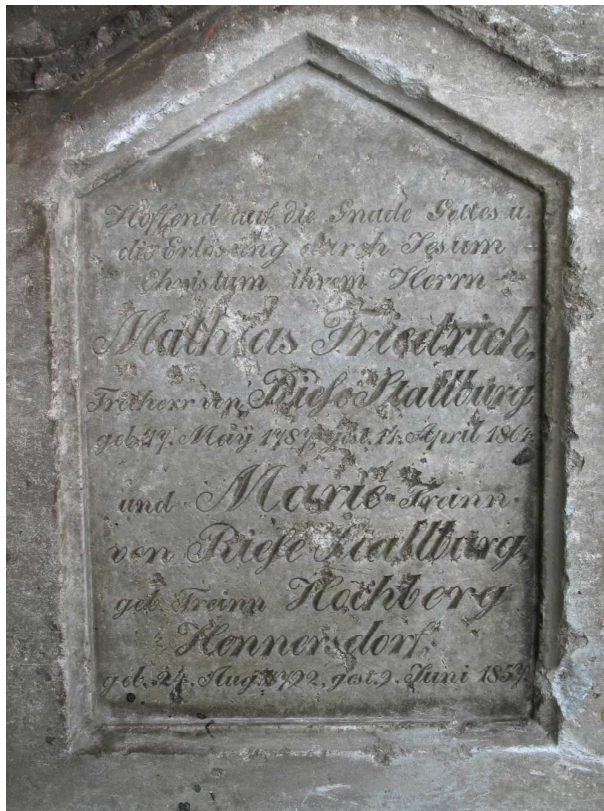 Hoffend auf die Gnade Gottes u.
die Erlösung durch Jesum
Christum ihrem Herrn
Mathias Friedrich,
Freiherr von Riese Stallburg
geb. Maÿ gest. 14. April
und Marie Freinn
von Riese Stallburg,
geb. Freinn Hochberg
Hennersdorf,
geb. 24. Aug. gest. 9. Juni 1857.